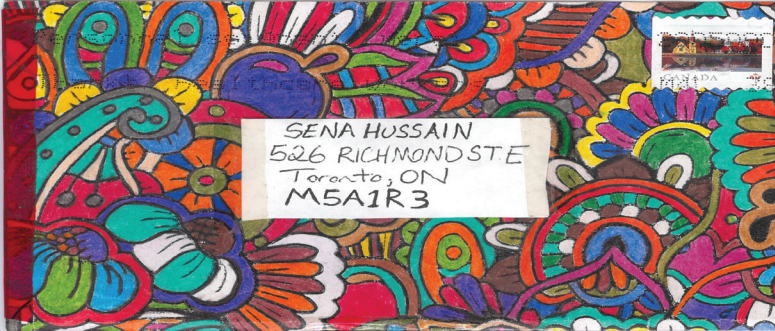 CANADA
SENA HUSSAIN
526 RICHMOND ST E
Toronto, ON
M5A1R3